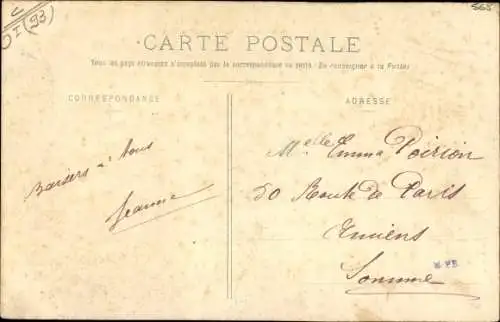 C
OI(93)
565
CARTE POSTALE
Tous les pays étrangers n'acceptent pas la correspondance au verso (Se renseigner à la Poste)
CORRESPONDANCE
ADRESSE
Baisers à tous
Jeanne
Melle Emma Poirion
50 Route de Paris
Amiens
Somme